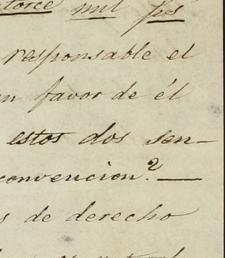 torce mil pes
responsable el
en favor de él
estos dos sen-
convencion? —
s de derecho